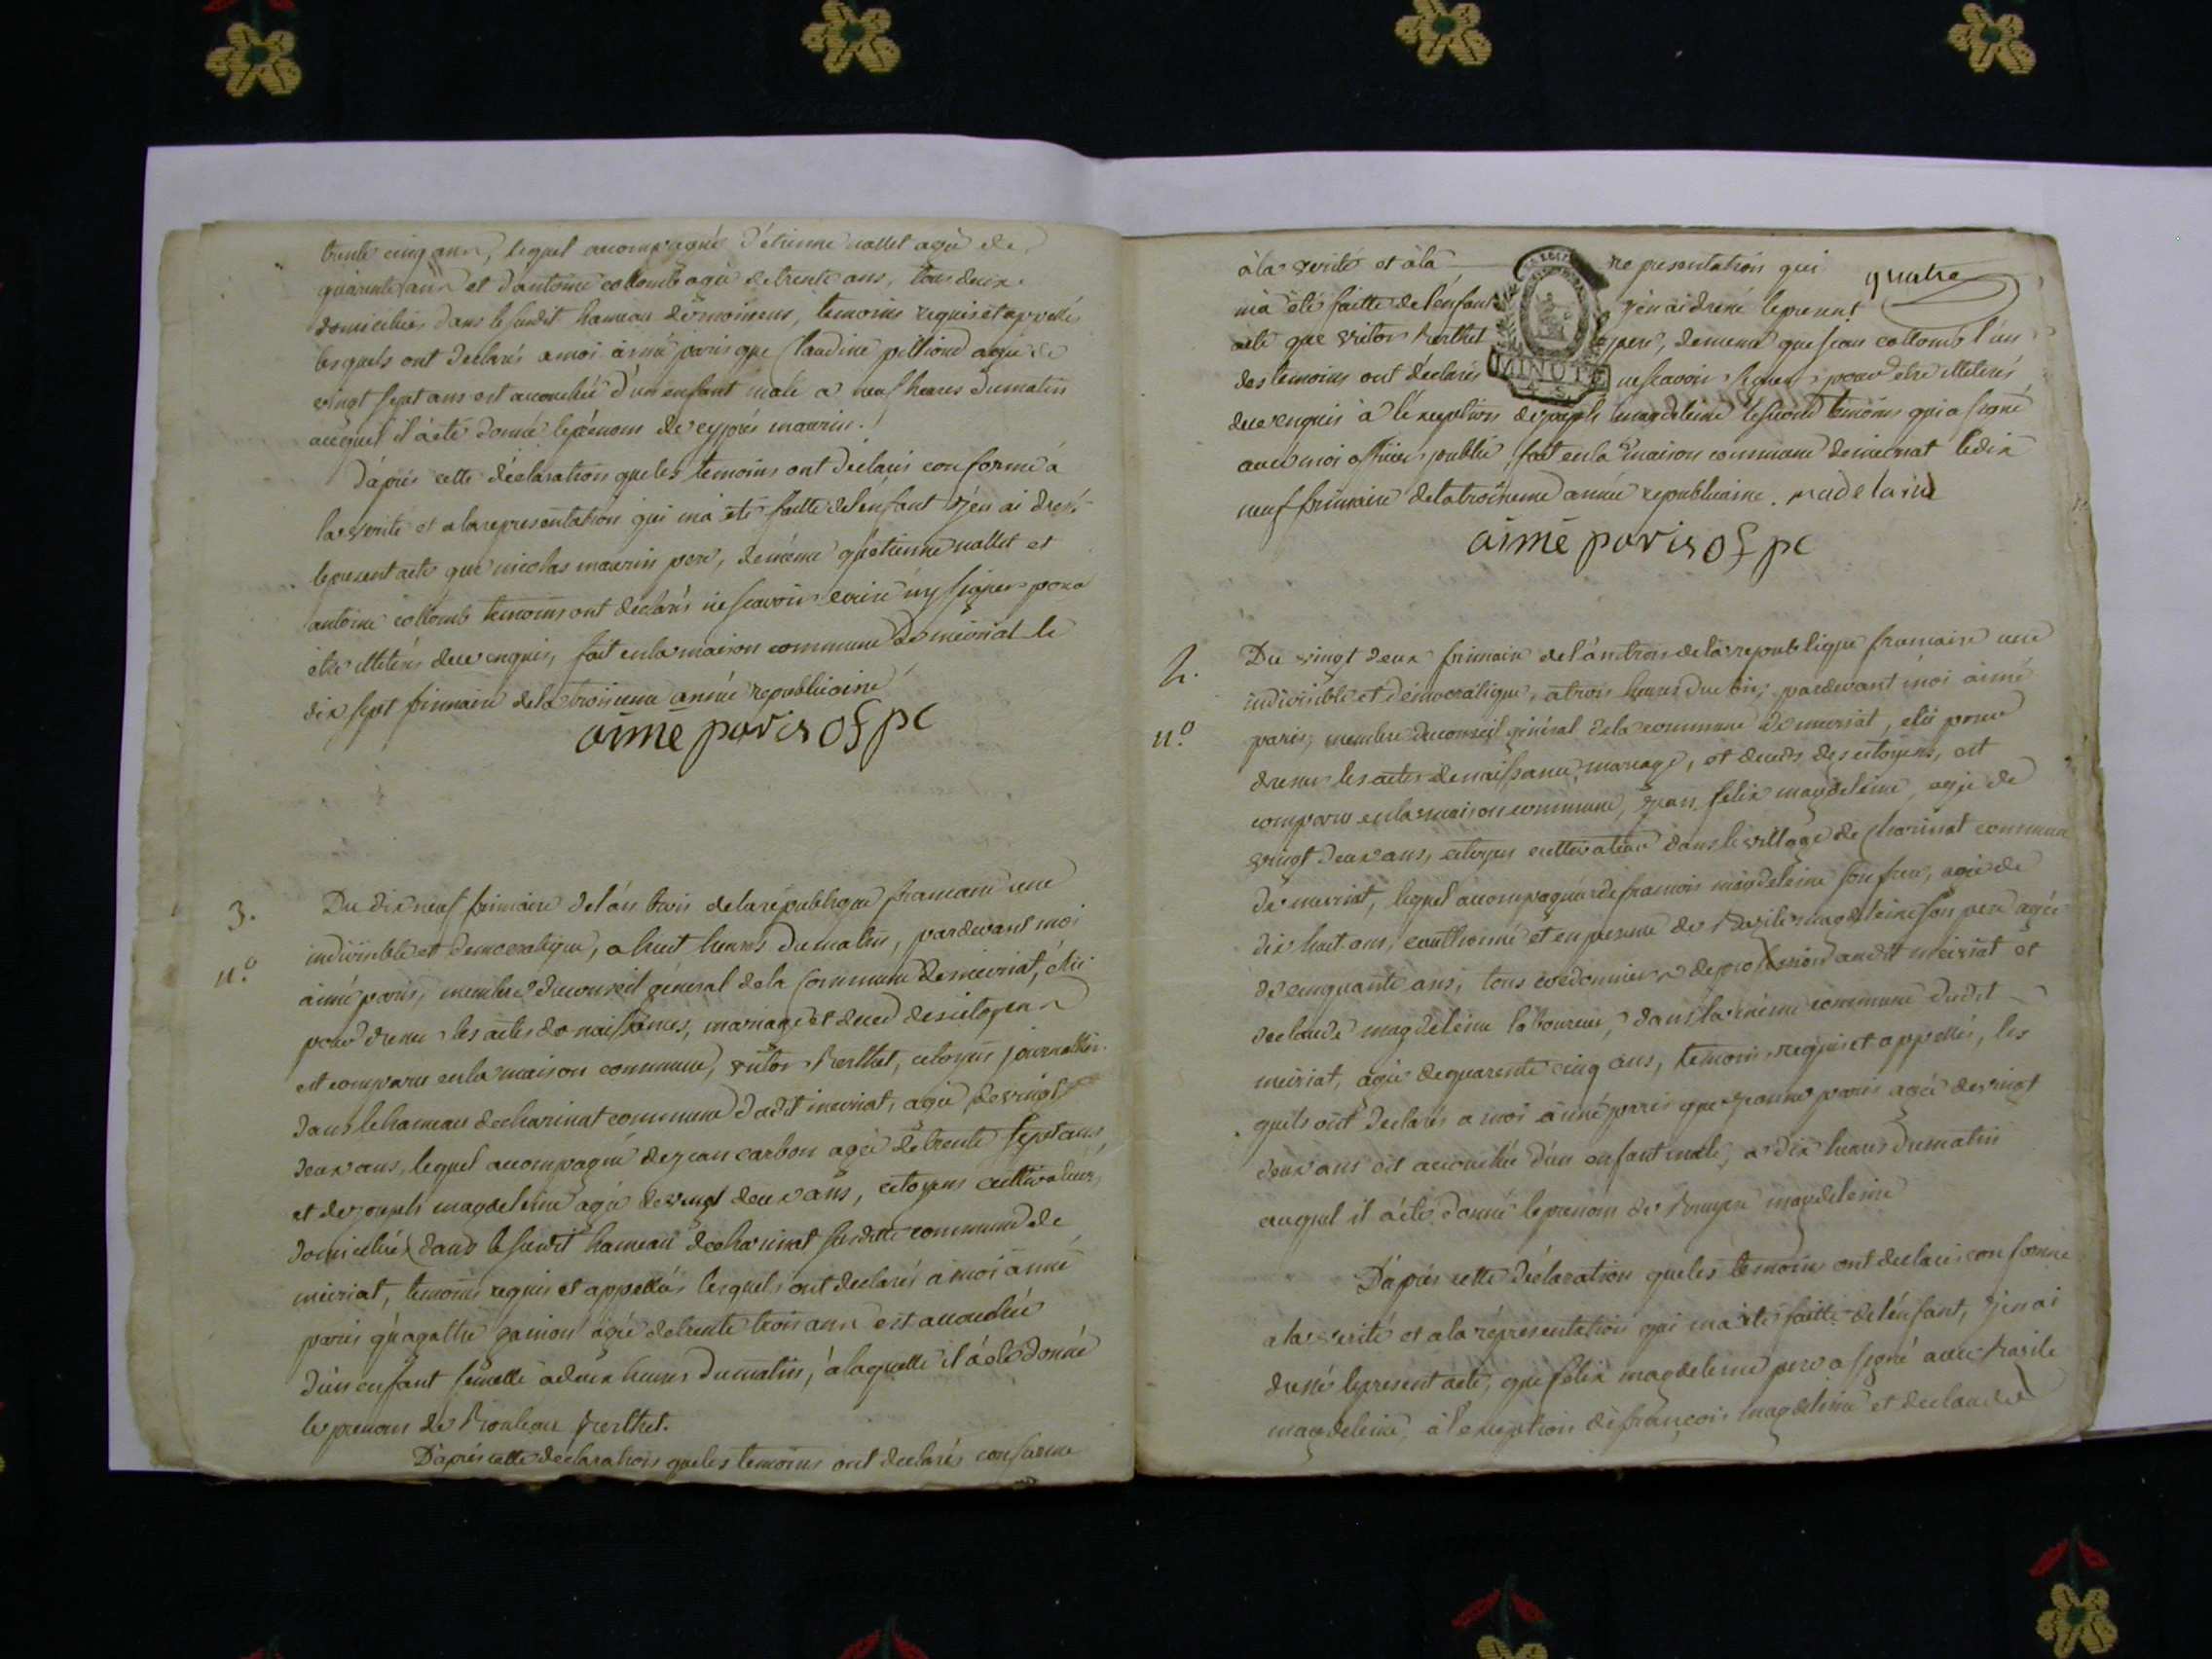 trente cinq ans, lequel accompagné d'étienne vallet agé de
quarente ans et d'antoine collomb agé de trente ans, tous deux
domiciliés dans le susdit hameau de moinens, temoins requis et appellés
lesquels ont declarés a moi aimé paris que Claudine pillion agée de
vingt sept ans est accouchée d'un enfant male a neuf heures du matin
auquel il à été donné le prénom de cyprés maurin.
D'apres cette déclaration que les temoins ont déclarés conforme à
la verité et a la representation qui m'a été faitte de l'enfant j'en ai dressé
le present acte que nicolas maurin pere, de même qu'etienne vallet et
antoine collomb temoins ont declarés ne scavoir ecrire ny signer pour
être illeterés de ce enquis, fait en la maison commune de meiriat le
dix sept frimaire de la troisieme année republicaine
aimé paris of pc
3.
n.o
Du dix neuf frimaire de l'an trois de la république francaise une
indivisible et democratique, a huit heures du matin, pardevant moi
aimé paris, membre du conseil général de la Commune de meiriat, élu
pour dresser les actes de naissances, mariage et deces des citoyens
est comparu en la maison commune, victor Berthet, citoyen journallier
dans le hameau de charinat commune dudit meiriat, agé de vingt
deux ans, lequel accompagné de jean carbon agé de trente sept ans,
et de joseph magdeleine agé de vingt deux ans, citoyens cultivateurs,
domiciliés dans le susdit hameau de charinat susditte commune de
meiriat, temoins requis et appellés lesquels ont declarés a moi aimé
paris qu'agathe agée de trente trois ans est accouchée
d'un enfant femelle a deux heures du matin, à laquelle il à été donné
le prenom de Berthet.
D'après cette déclaration que les temoins ont declarés conforme
quatre
à la verité et à la representation qui
m'a été faitte de l'enfant j'en ai dressé le present
MINUTE
acte que victor Berthet pere, de meme que jean collomb l'un
des temoins ont déclarés ne scavoir signer pour etre illeterés
de ce enquis à l'exception de joseph magdeleine le second temoins qui a signé
avec moi officier public, fait en la maison commune de meiriat le dix
neuf frimaire de la troisieme année republicaine. madelaine
aimé paris of pc
4.
n.o
Du vingt deux frimaire de l'an trois de la republique francaise une
indivisible et démocratique, a trois heures du soir, pardevant moi aimé
paris, membre du conseil général de la commune de meiriat, élu pour
dresser les actes de naissance, mariage, et deces des citoyens, est
comparu en la maison commune, jean felix magdeleine, agé de
vingt deux ans, citoyen cultivateur dans le village de Charinat commune
de meiriat, lequel accompagné de francois magdeleine son frere, agé de
dix huit ans, et en presence de Bazile magdeleine son pere agé
de cinquante ans, tous cordonniers de profession audit meiriat et
de claude magdeleine laboureur, dans la même commune dudit
meiriat, agé de quarente cinq ans, temoins requis et appellés, les
quels ont declarés a moi aimé paris que jeanne paris agée de vingt
deux ans est accouchée d'un enfant male, a dix heures du matin
auquel il à été donné le prenom de magdeleine
D'après cette déclaration que les temoins ont declarés conforme
a la verité et a la réprésentation qui m'a été faitte de l'enfant, j'en ai
dressé le present acte, que felix magdeleine pere a signé avec Basile
magdeleine, à l'exception de françois magdeleine et de claude